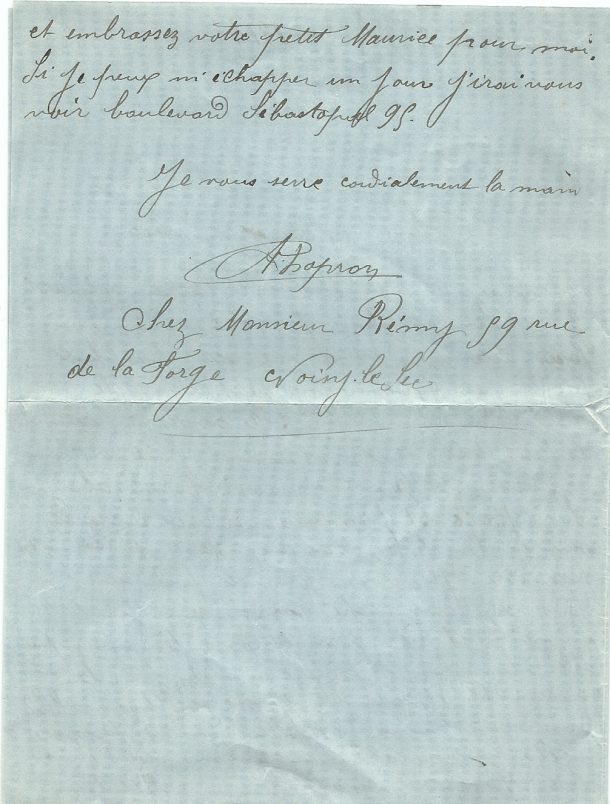 et embrassez votre petit Maurice pour moi.
Si je peux m'échapper un jour j'irai vous
voir boulevard Sébastopol 95.
Je vous serre cordialement la main
Chez Monsieur Rémy 59 rue
de la Forge Noisy-le-Sec